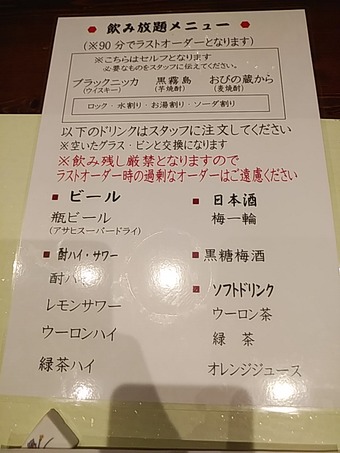 飲み放題メニュー
(※90分でラストオーダーとなります)
※こちらはセルフとなります
必要なものをスタッフに伝えてください。
ブラックニッカ 黒霧島 おびの蔵から
(ウイスキー) (芋焼酎) (麦焼酎)
ロック・水割り・お湯割り・ソーダ割り
以下のドリンクはスタッフに注文してください
※空いたグラス・ビンと交換になります
※飲み残し厳禁となりますので
ラストオーダー時の過剰なオーダーはご遠慮ください
■ ビール
瓶ビール
(アサヒスーパードライ)
■ 酎ハイ・サワー
酎ハイ
レモンサワー
ウーロンハイ
緑茶ハイ
■ 日本酒
梅一輪
■
黒糖梅酒
■ ソフトドリンク
ウーロン茶
緑 茶
オレンジジュース